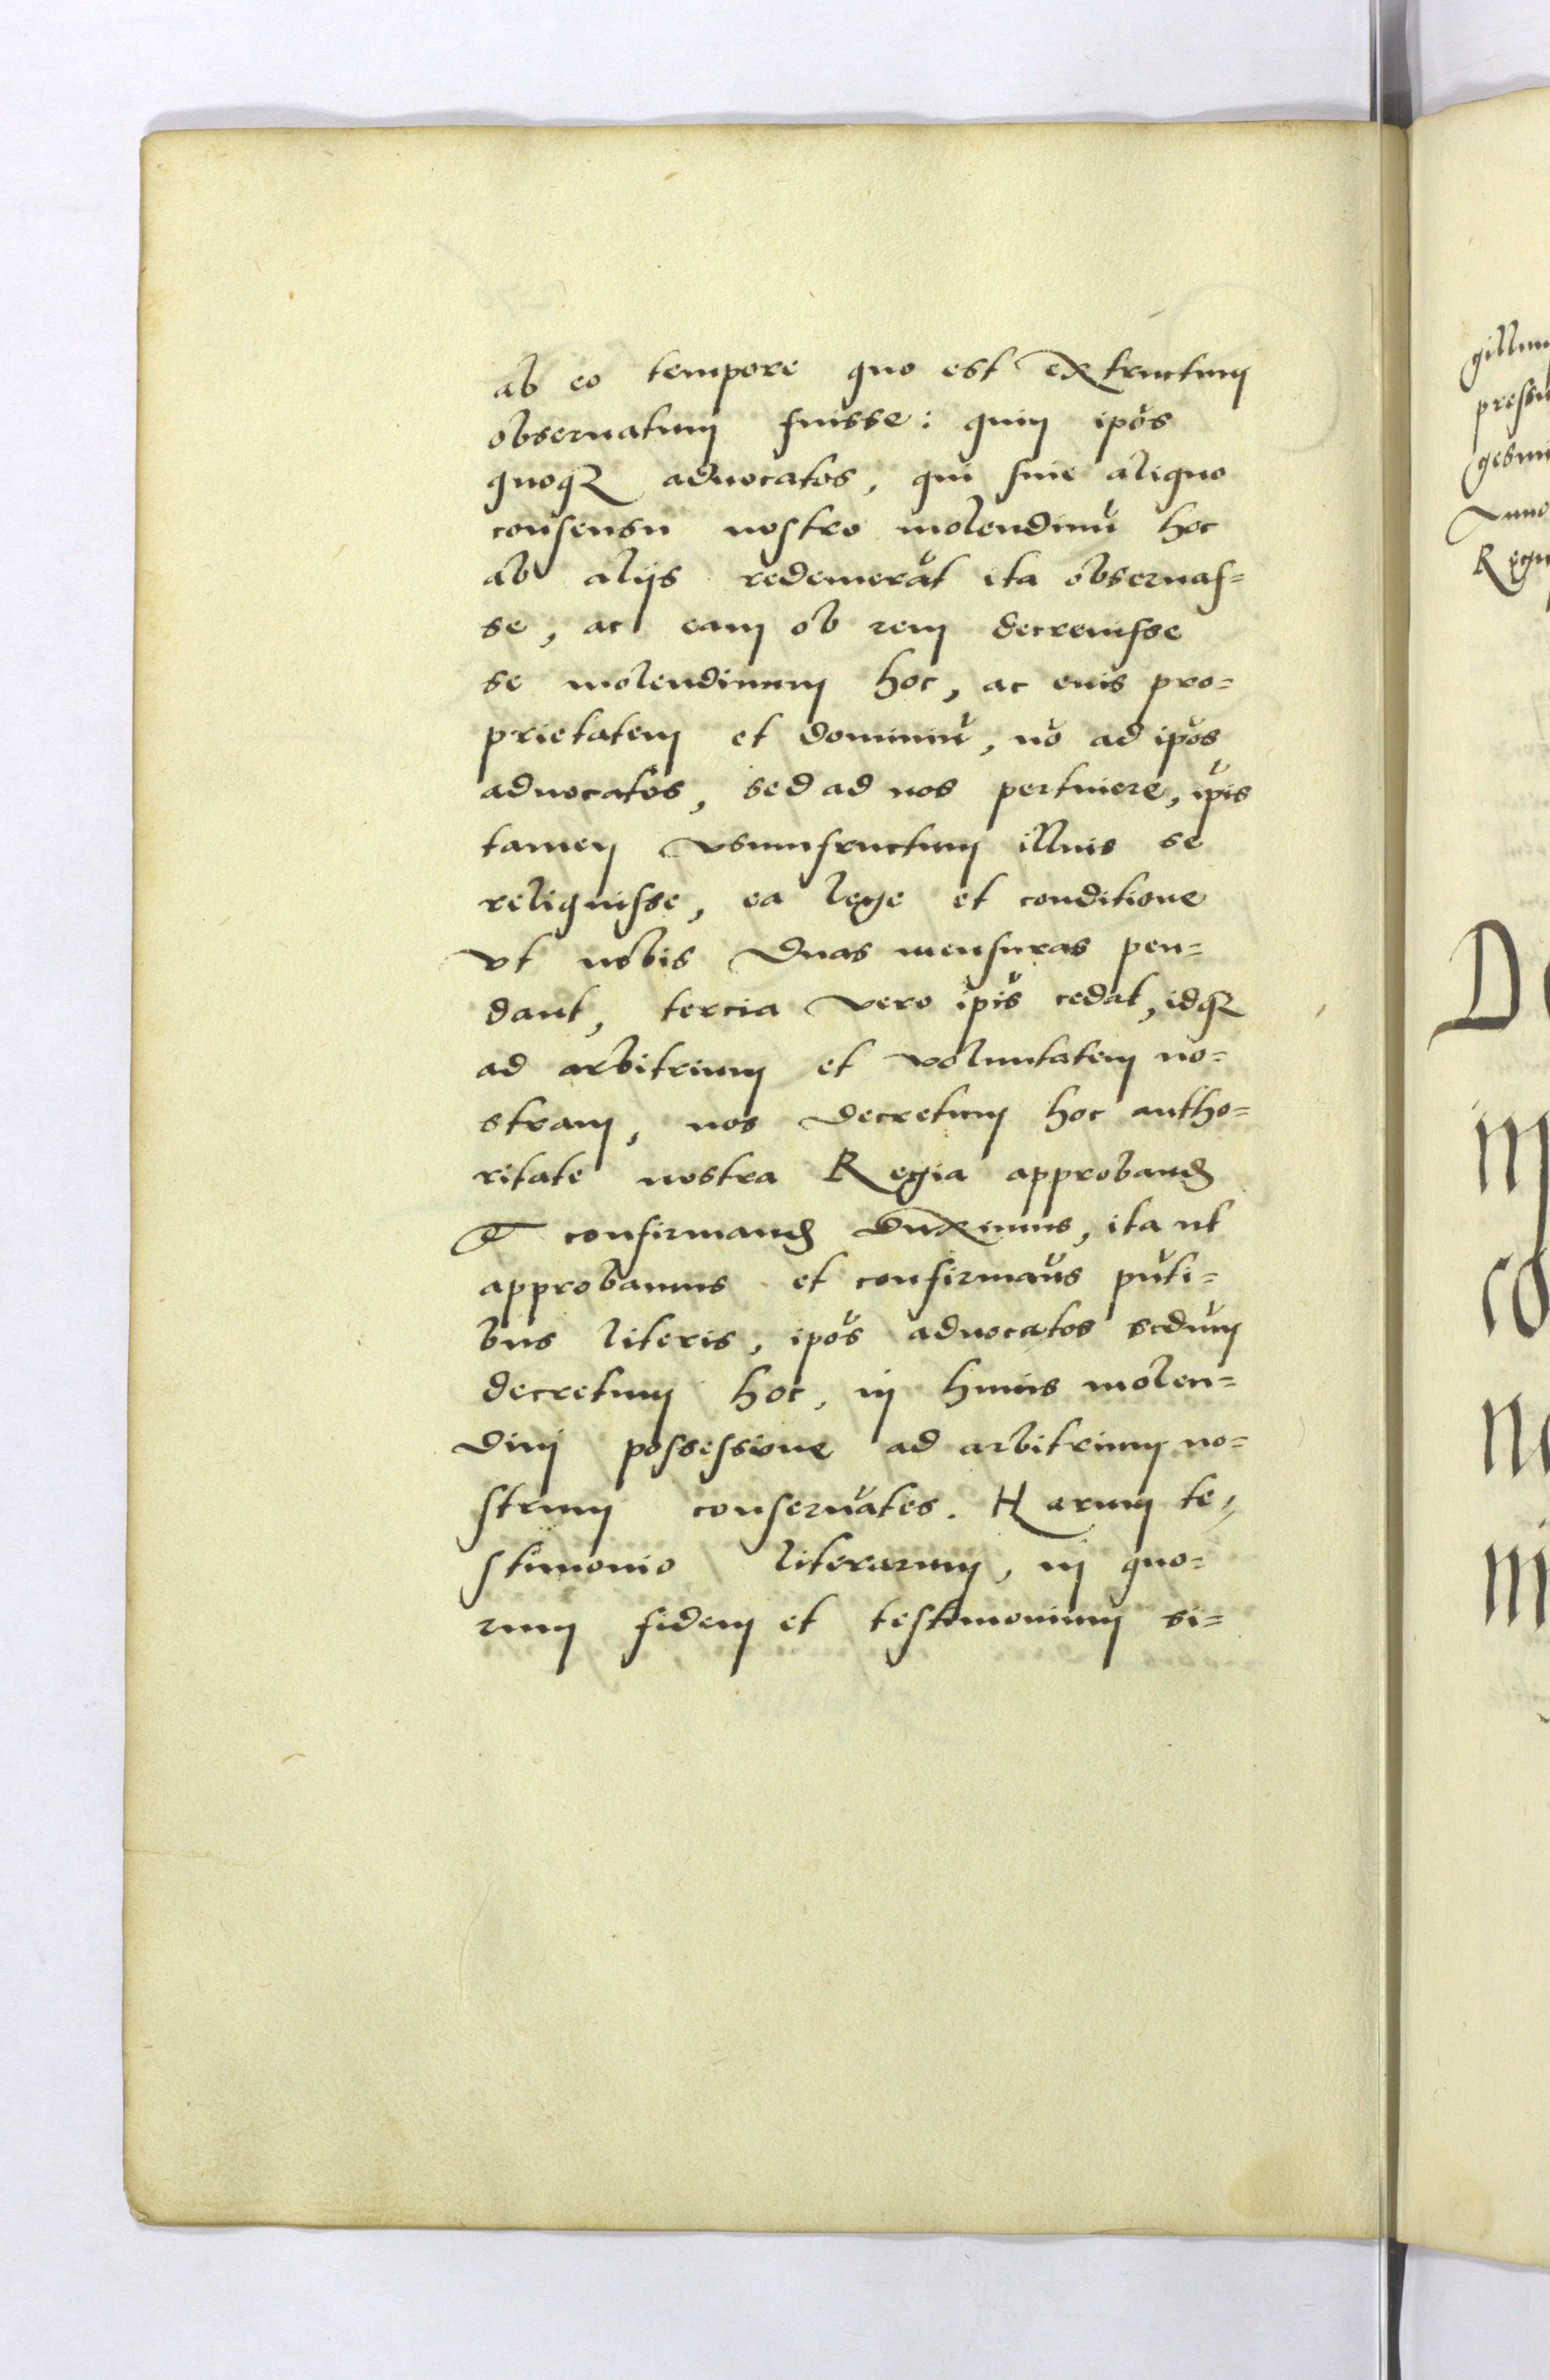 ab eo tempore quo est extructum
obseruatum fuisse: quin ipos̃
quoqꝫ aduocatos, qui sine aliquo
consensu nostro molendinũ hoc
ab alijs redemerãt ita obseruas=
se, ac eam ob rem decreuisse
se molendinum hoc, ac euis pro=
prietatem et dominiũ, nõ ad ipõs
aduocatos, sed ad nos pertinere, ip̃is
tamen vsumfructum illius se
reliquisse, ea lege et conditione
vt nobis duas mensuras pen=
dant, tercia vero ipĩs cedat, idqꝫ
ad arbitrium et voluntatem no=
stram, nos decretum hoc autho=
ritate nostra Regia approband
et confirmand duximus, ita ut
approbamus et confirmam̃s pñti=
bus literis, ipõs aduocatos scdum̃
decretum hoc, in huius molen=
dini possessione ad arbitrium no=
strum conseruãtes. Harum te=
stimonio literarum, in quo=
rum fidem et testimonium si=
gillum
pressu
gesim
Anno
Regn
D